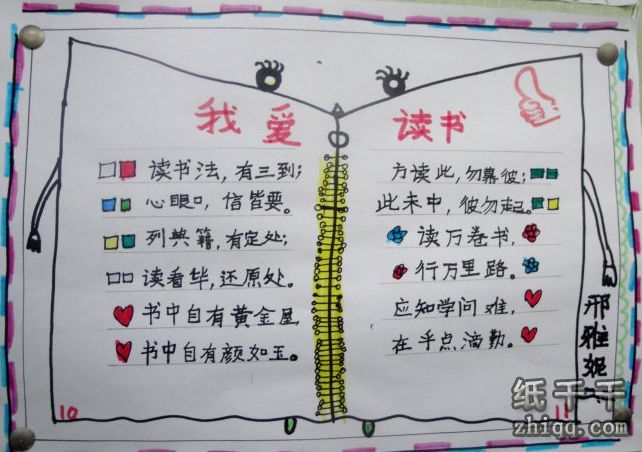 我爱读书
读书法，有三到；
心眼口，信皆要。
列典籍，有定处；
读看毕，还原处。
书中自有黄金屋
书中自有颜如玉。
10
方读此，勿慕彼；
此未中，彼勿起。
读万卷书，
行万里路。
应知学问难，
在乎点滴勤。
11
邢雅妮
纸千千
zhiqq.com